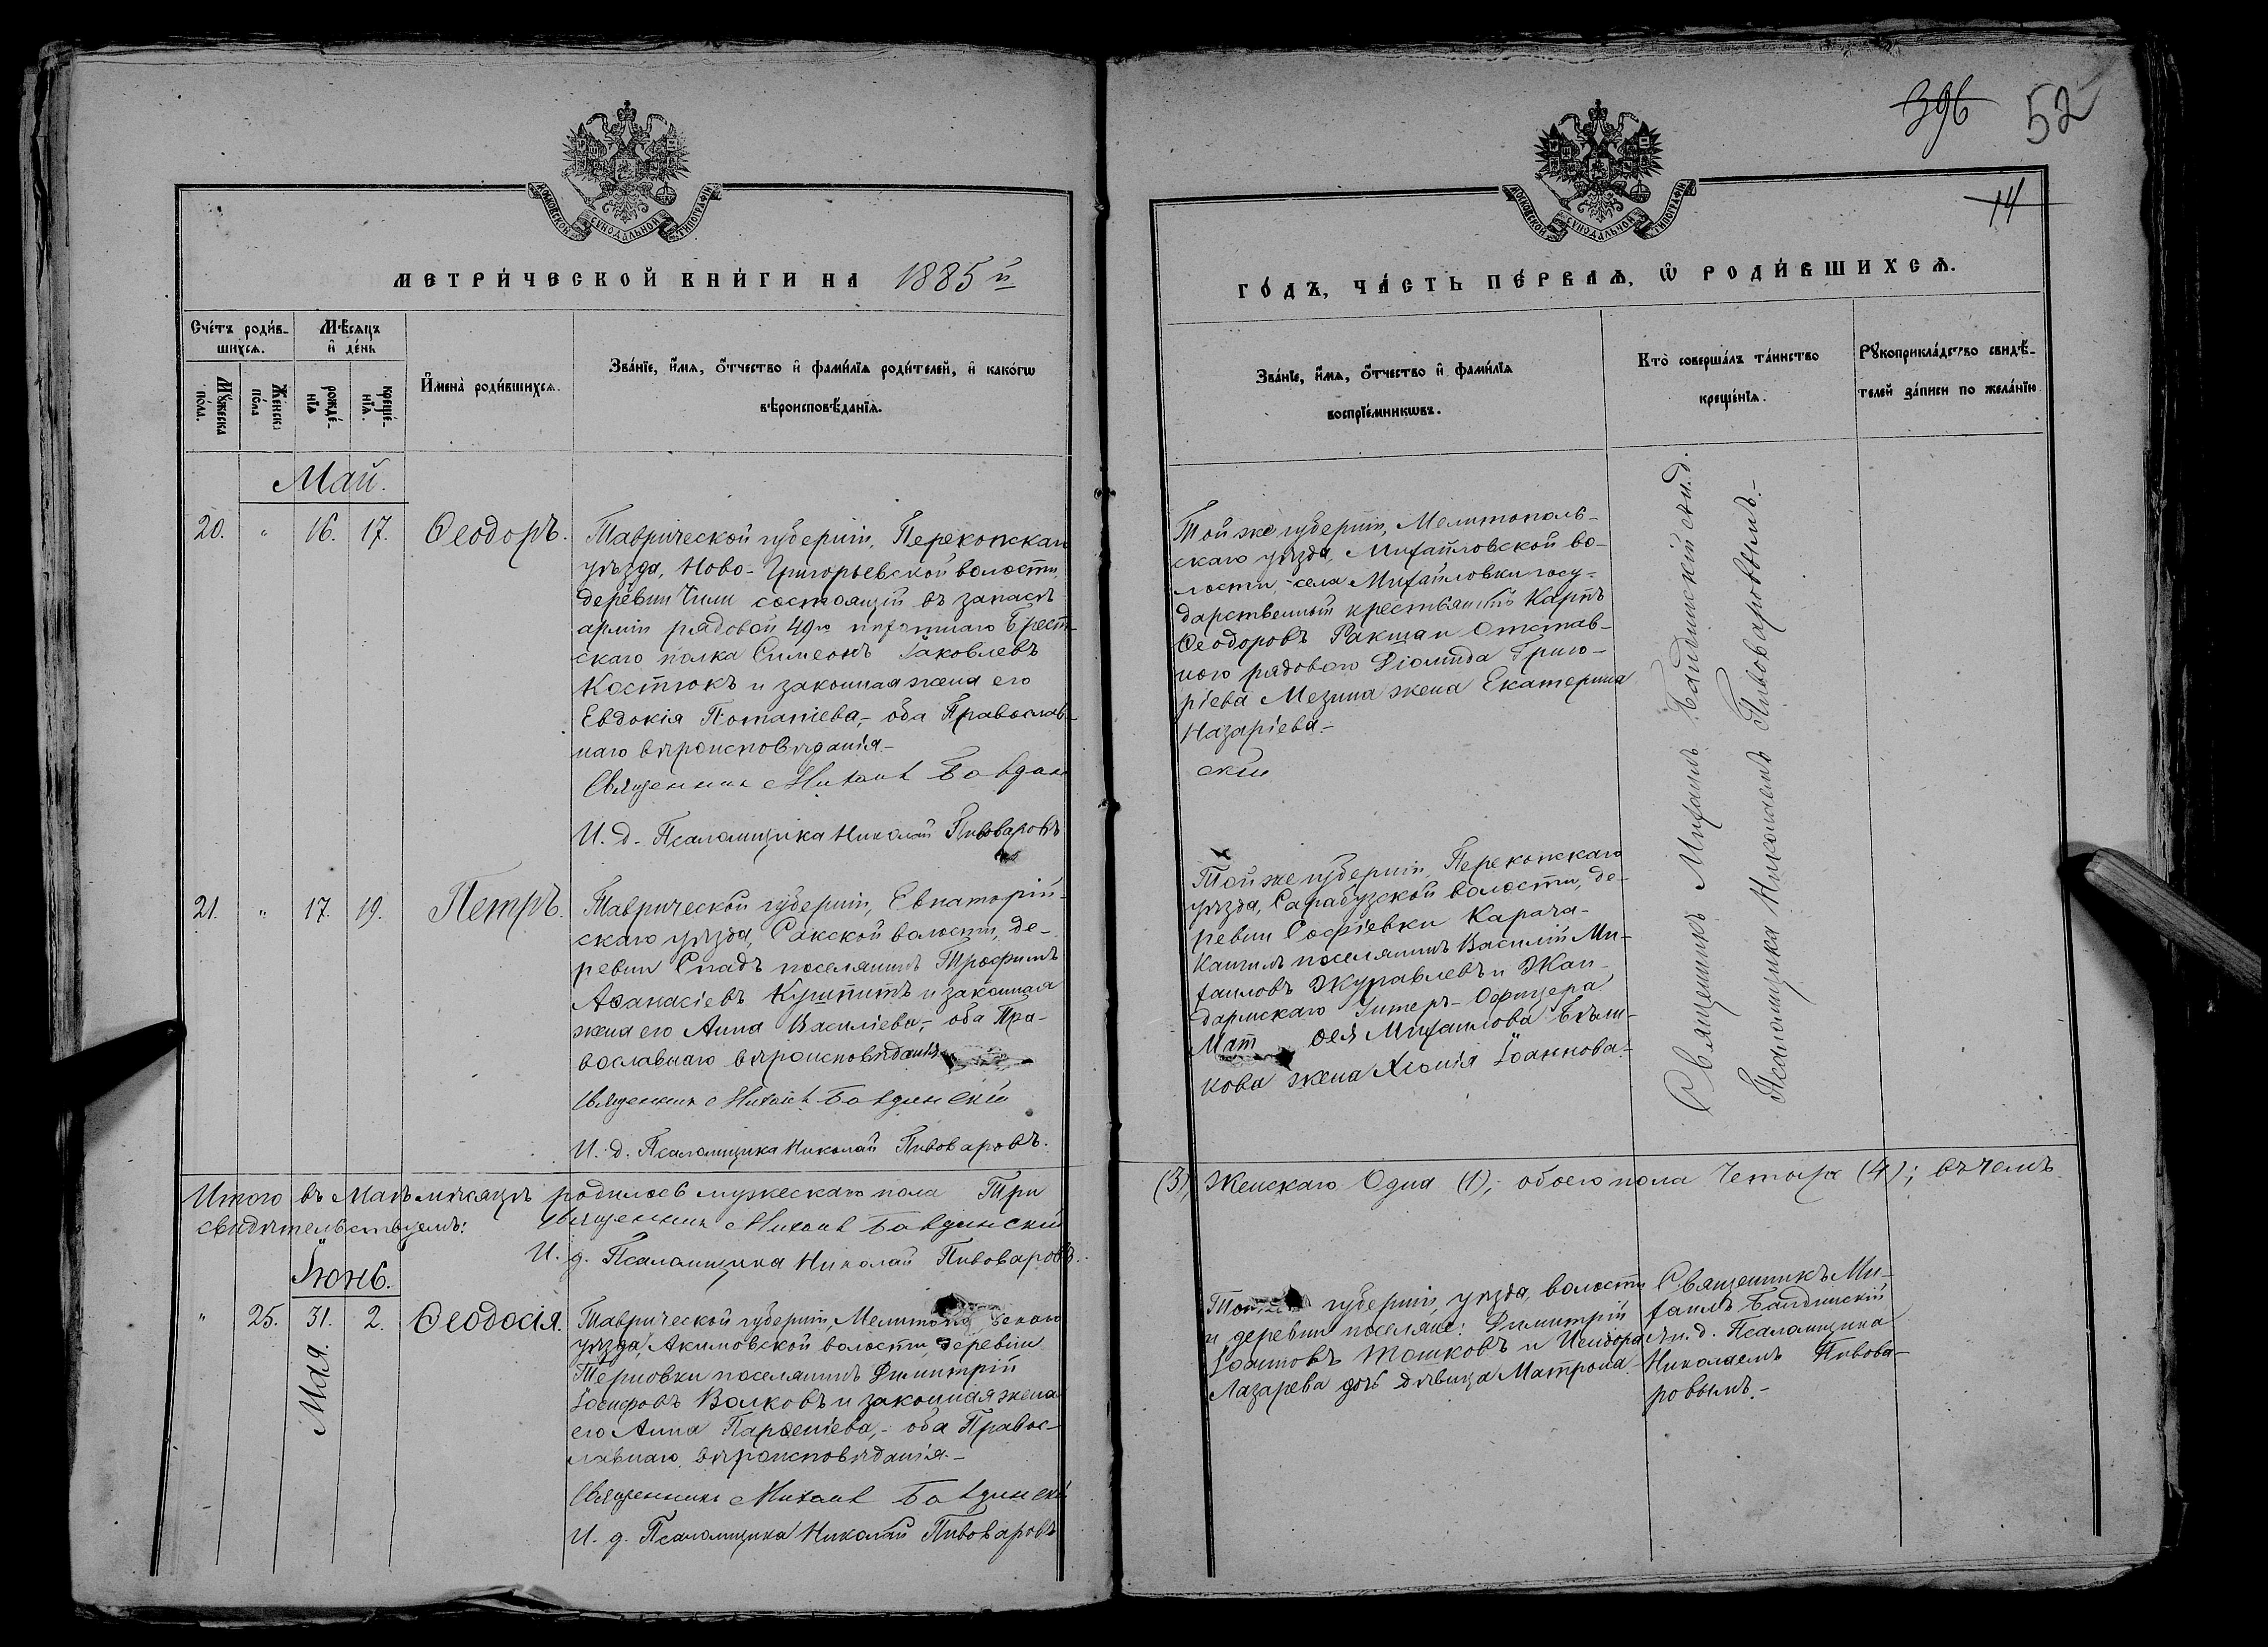 396 52
14
МОСКОВСКОЙ СѴНОДАЛЬНОЙ ТИПОГРАФІИ
МОСКОВСКОЙ СѴНОДАЛЬНОЙ ТИПОГРАФІИ
МЕТРИ́ЧЕСКОЙ КНИ́ГИ НА 1885й
ГО́ДЪ, ЧА́СТЬ ПЕ́РВАѦ, Ѽ РОДИ́ВШИХСѦ.
Сче́тъ роди́в-
шихсѧ.
Мѣ́сѧцъ
и҆ де́нь
Мꙋ́жеска
по́ла.
Же́нска
по́ла
рожде́-
нїѧ
креще́-
нїѧ.
И҆мена̀ роди́вшихсѧ.
Зва́нїе, и҆́мѧ, ѻ҆́тчество и҆ фами́лїѧ роди́телей, и҆ како́гѡ
вѣроисповѣ́данїѧ.
Зва́нїе, и҆́мѧ, ѻ҆́тчество и҆ фами́лїѧ
воспрїе́мникѡвъ.
Кто̀ соверша́лъ та́инство
креще́нїѧ.
Рꙋкоприкла́дство свидѣ́-
телей за́писи по жела́нїю
Май.
20. " 16. 17. Ѳеодоръ.
Таврической губерніи, Перекопскаго
уѣзда, Ново-Григорьевской волости,
деревни Чили состоящій въ запасѣ
арміи рядовой 49го пѣхотнаго Брест-
скаго полка Симеонъ Іаковлевъ
Костюкъ и законная жена его
Евдокія Потапіева,- оба Православ-
наго вѣроисповѣданія.-
Священникъ Михаилъ Байдин
И. д. Псаломщика Николай Пивоваровъ
Той же губерніи, Мелитополь-
скаго уѣзда, Михайловской во-
лости, села Михайловки госу-
дарственный крестьянинъ Карпъ
Ѳеодоровъ Ракша и Отстав-
ного рядоваго Діомида Григо-
ріева Мезина жена Екатерина
Назаріева.-
скій
Священникъ Михаилъ Байдинскій съ и. д.
Псаломщика Николаемъ Пивоваровымъ.-
21. " 17. 19. Петръ.
Таврической губерніи, Евпаторій-
скаго уѣзда, Сакской волости, де-
ревни Спадъ поселянинъ Трофимъ
Аѳанасіевъ и законная
жена его Анна Василіева,- оба Пра-
вославнаго вѣроисповѣданія
Священникъ Михаилъ Байдинскій
И. д. Псаломщика Николай Пивоваровъ.
Той же губерніи, Перекопскаго
уѣзда, Сарабузской волости, де-
ревни Софіевки Карача-
Кангилъ поселянинъ Василій Ми-
хаиловъ Журавлевъ и Жан-
дармскаго Унтеръ-Офицера
Мат ѳея Михаилова Бѣли-
кова жена Хіонія Іоаннова.-
Итого въ Маѣ мѣсяцѣ родилось мужескаго пола Три (3), Женскаго Одна (1); обоего пола Четыре (4); въ чемъ
свидѣтельствуемъ: Священникъ Михаилъ Байдинскій
И. д. Псаломщика Николай Пивоваровъ.
Іюнь.
" 25. 31. 2. Ѳеодосія.
Мая.
Таврической губерніи, Мелитопольскаго
уѣзда, Акимовской волости, деревни
Терновки поселянинъ Димитрій
Іосифовъ Волковъ и законная жена
его Анна Парѳеніева,- оба Правос-
лавнаго вѣроисповѣданія.-
Священникъ Михаилъ Байдинскій
И. д. Псаломщика Николай Пивоваровъ
Той же губерніи, уѣзда, волости
и деревни поселяне: Димитрій
Іоанновъ Тошковъ и Исидора
Лазарева дочь дѣвица Матрона.
Священникъ Ми-
хаилъ Байдинскій
съ и. д. Псаломщика
Николаемъ Пивова-
ровымъ.-